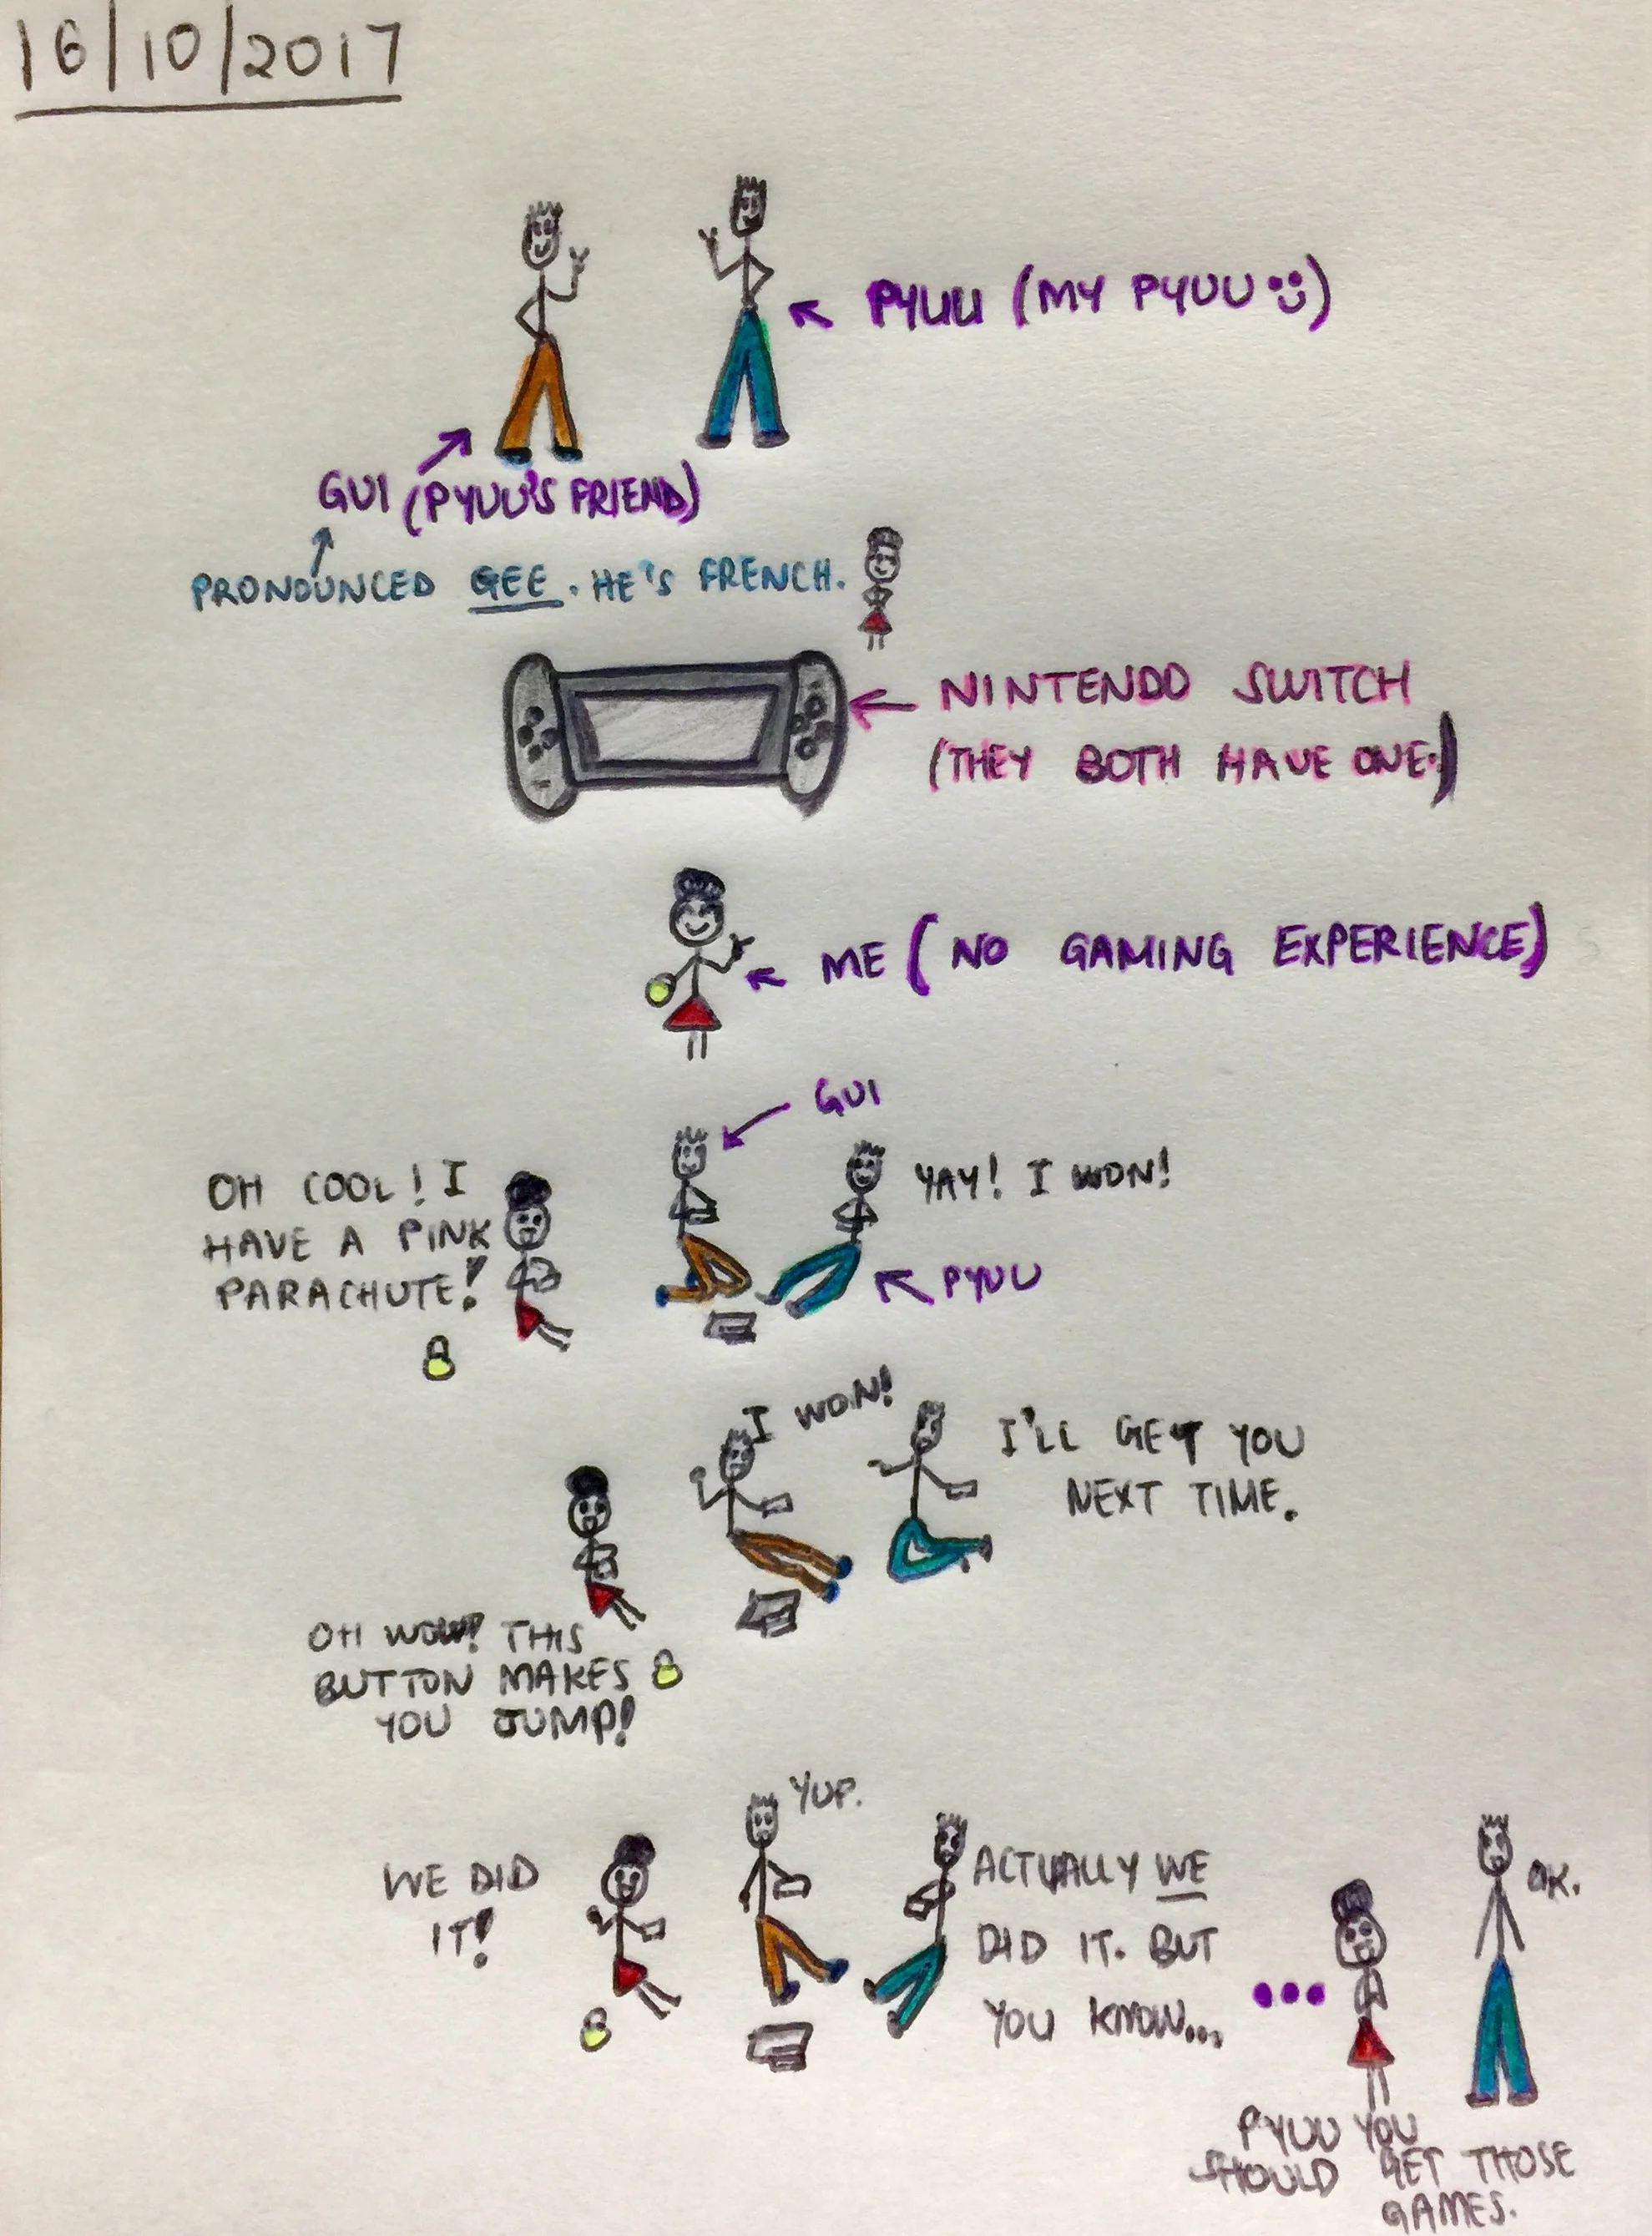 16/10/2017
PYUU (MY PYUU :))
GUI (PYUU'S FRIEND)
PRONOUNCED GEE. HE'S FRENCH.
NINTENDO SWITCH
(THEY BOTH HAVE ONE.)
ME (NO GAMING EXPERIENCE)
GUI
OH COOL! I
HAVE A PINK
PARACHUTE!
YAY! I WON!
PYUU
I WON!
I'LL GET YOU
NEXT TIME.
OH WOW! THIS
BUTTON MAKES
YOU JUMP!
YUP.
WE DID
IT!
ACTUALLY WE
DID IT. BUT
YOU KNOW...
...
OK.
PYUU YOU
SHOULD GET THOSE
GAMES.